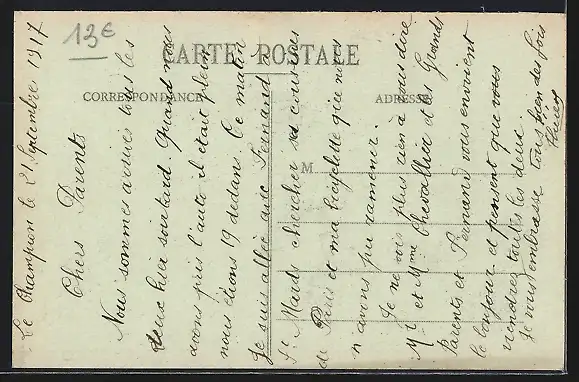 13€
CARTE POSTALE
CORRESPONDANCE
ADRESSE
M
Le Champion le 21 Septembre 1917
Chers Parents
Nous sommes arrivés tous les
deux hier soir tard. Quand nous
avons pris l'auto il était plein
nous étions 19 dedans. Ce matin
je suis allée avec Fernand à
St Mards chercher sa
de Paris et ma bicyclette que nous
n'avions pu ramener.
Je ne vois plus rien à vous dire
Mr et Mme Chevallier et les Grands
Parents et Fernand vous envoient
le bonjour et pensent que vous
viendrez toutes les deux
Je vous embrasse tous bien des fois